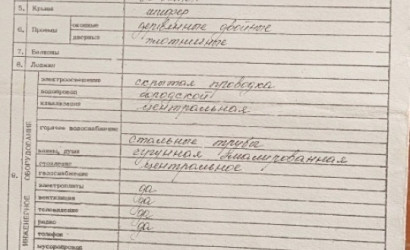 5. Крыша шифер
6. Проемы оконные деревянное двойное
дверные
7. Балконы
8. Лоджии
9. ИНЖЕНЕРНОЕ ОБОРУДОВАНИЕ
электроосвещение скрытая проводка
водопровод городской
канализация центральная
горячее водоснабжение стальные трубы
ванны, души чугунная эмалированная
отопление центральное
газоснабжение
электроплиты да
вентиляция да
телевидение да
радио да
телефон
мусоропровод